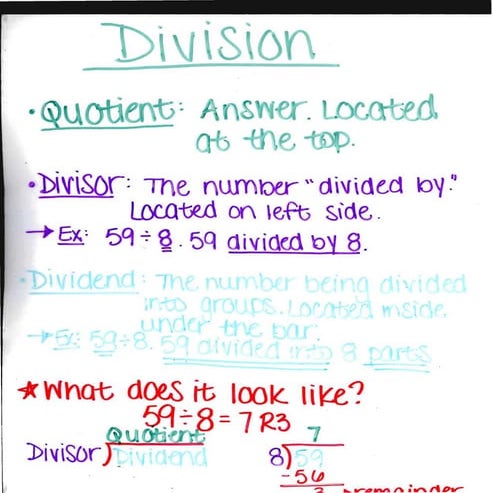 Division
• Quotient: Answer. Located
at the top.
• Divisor: The number "divided by."
Located on left side.
→ Ex: 59 ÷ 8. 59 divided by 8.
• Dividend: The number being divided
into groups. Located inside,
under the bar.
→ Ex: 59÷8. 59 divided into 8 parts
★ What does it look like?
59÷8 = 7 R3
Quotient 7
Divisor)Dividend 8)59
-56
3 remainder